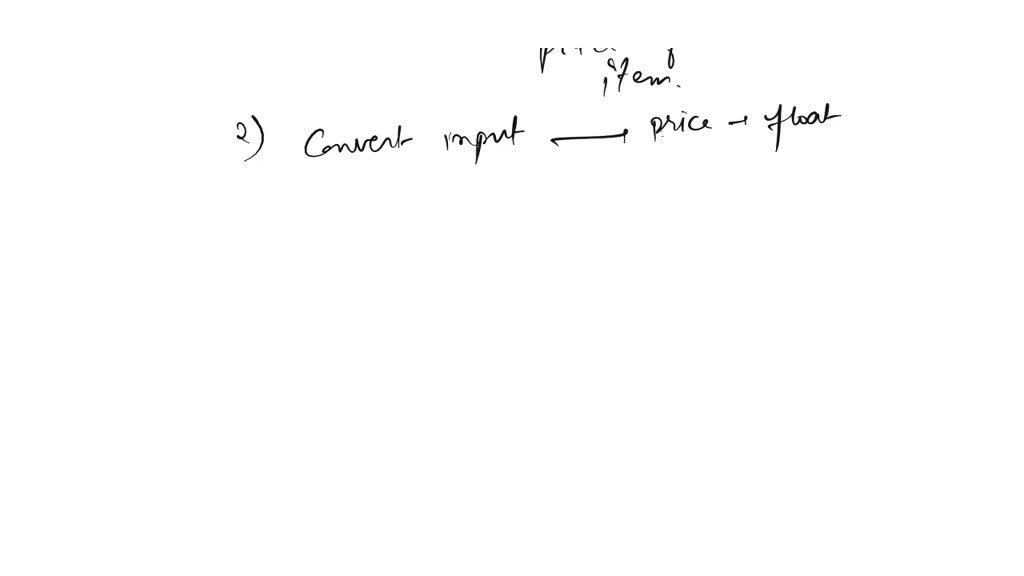 item.
2) Convert input → price → float